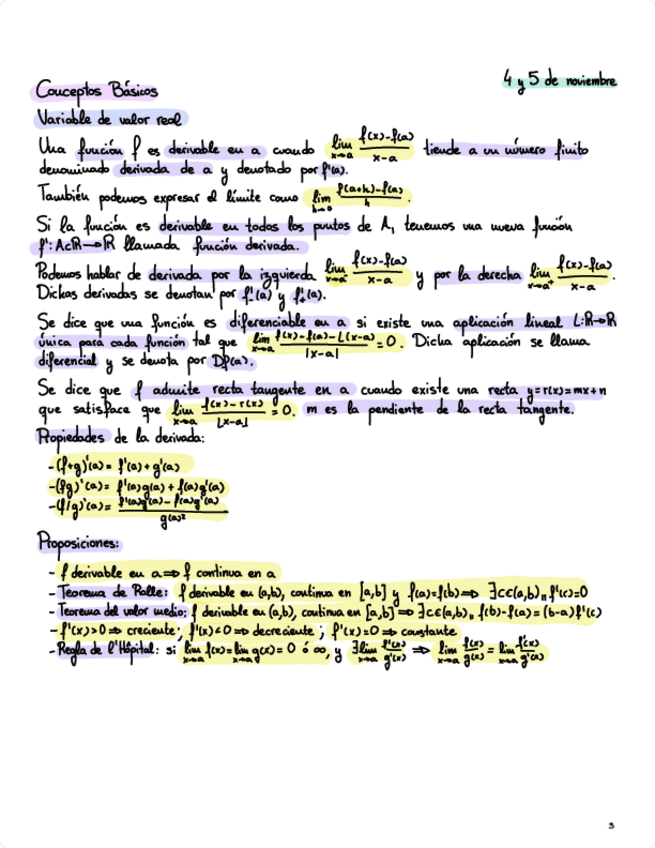 4 y 5 de noviembre
Conceptos Básicos
Variable de valor real
Una función f es derivable en a cuando lim x→a (f(x)-f(a))/(x-a) tiende a un número finito
denominado derivada de a y denotado por f'(a).
También podemos expresar el límite como lim h→0 (f(a+h)-f(a))/h.
Si la función es derivable en todos los puntos de A, tenemos una nueva función
f': A⊂ℝ→ℝ llamada función derivada.
Podemos hablar de derivada por la izquierda lim x→a⁻ (f(x)-f(a))/(x-a) y por la derecha lim x→a⁺ (f(x)-f(a))/(x-a).
Dichas derivadas se denotan por f'₋(a) y f'₊(a).
Se dice que una función es diferenciable en a si existe una aplicación lineal L:ℝ→ℝ
única para cada función tal que lim x→a (f(x)-f(a)-L(x-a))/|x-a| = 0. Dicha aplicación se llama
diferencial y se denota por Df(a).
Se dice que f admite recta tangente en a cuando existe una recta y=r(x)=mx+n
que satisface que lim x→a (f(x)-r(x))/|x-a| = 0. m es la pendiente de la recta tangente.
Propiedades de la derivada:
-(f+g)'(a)= f'(a)+g'(a)
-(fg)'(a)= f'(a)g(a) + f(a)g'(a)
-(f/g)'(a)= (f'(a)g(a)-f(a)g'(a))/g(a)²
Proposiciones:
- f derivable en a ⇒ f continua en a
- Teorema de Rolle: f derivable en (a,b), continua en [a,b] y f(a)=f(b) ⇒ ∃c∈(a,b) ,, f'(c)=0
- Teorema del valor medio: f derivable en (a,b), continua en [a,b] ⇒ ∃c∈(a,b) ,, f(b)-f(a)=(b-a)f'(c)
- f'(x)>0 ⇒ creciente; f'(x)<0 ⇒ decreciente; f'(x)=0 ⇒ constante
- Regla de l'Hôpital: si lim x→a f(x)= lim x→a g(x)= 0 ó ∞, y ∃ lim x→a f'(x)/g'(x) ⇒ lim x→a f(x)/g(x) = lim x→a f'(x)/g'(x)
3